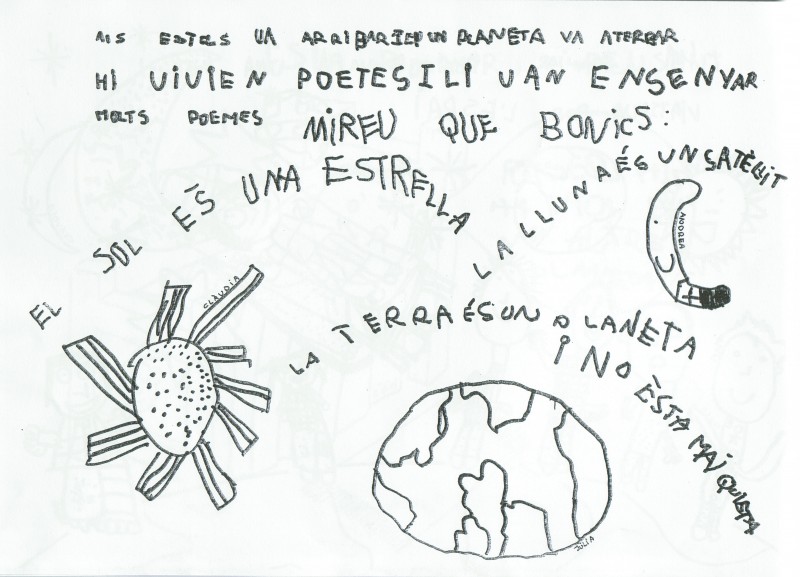 ALS ESTELS VA ARRIBAR I EN UN PLANETA VA ATERRAR
HI VIVIEN POETES I LI VAN ENSENYAR
MOLTS POEMES MIREU QUE BONICS:
EL SOL ÉS UNA ESTRELLA
LA LLUNA ÉS UN SATÈL·LIT
ANDREA
CLÀUDIA
LA TERRA ÉS UN PLANETA
I NO ÈSTA MAI QUIETA
JÚLIA